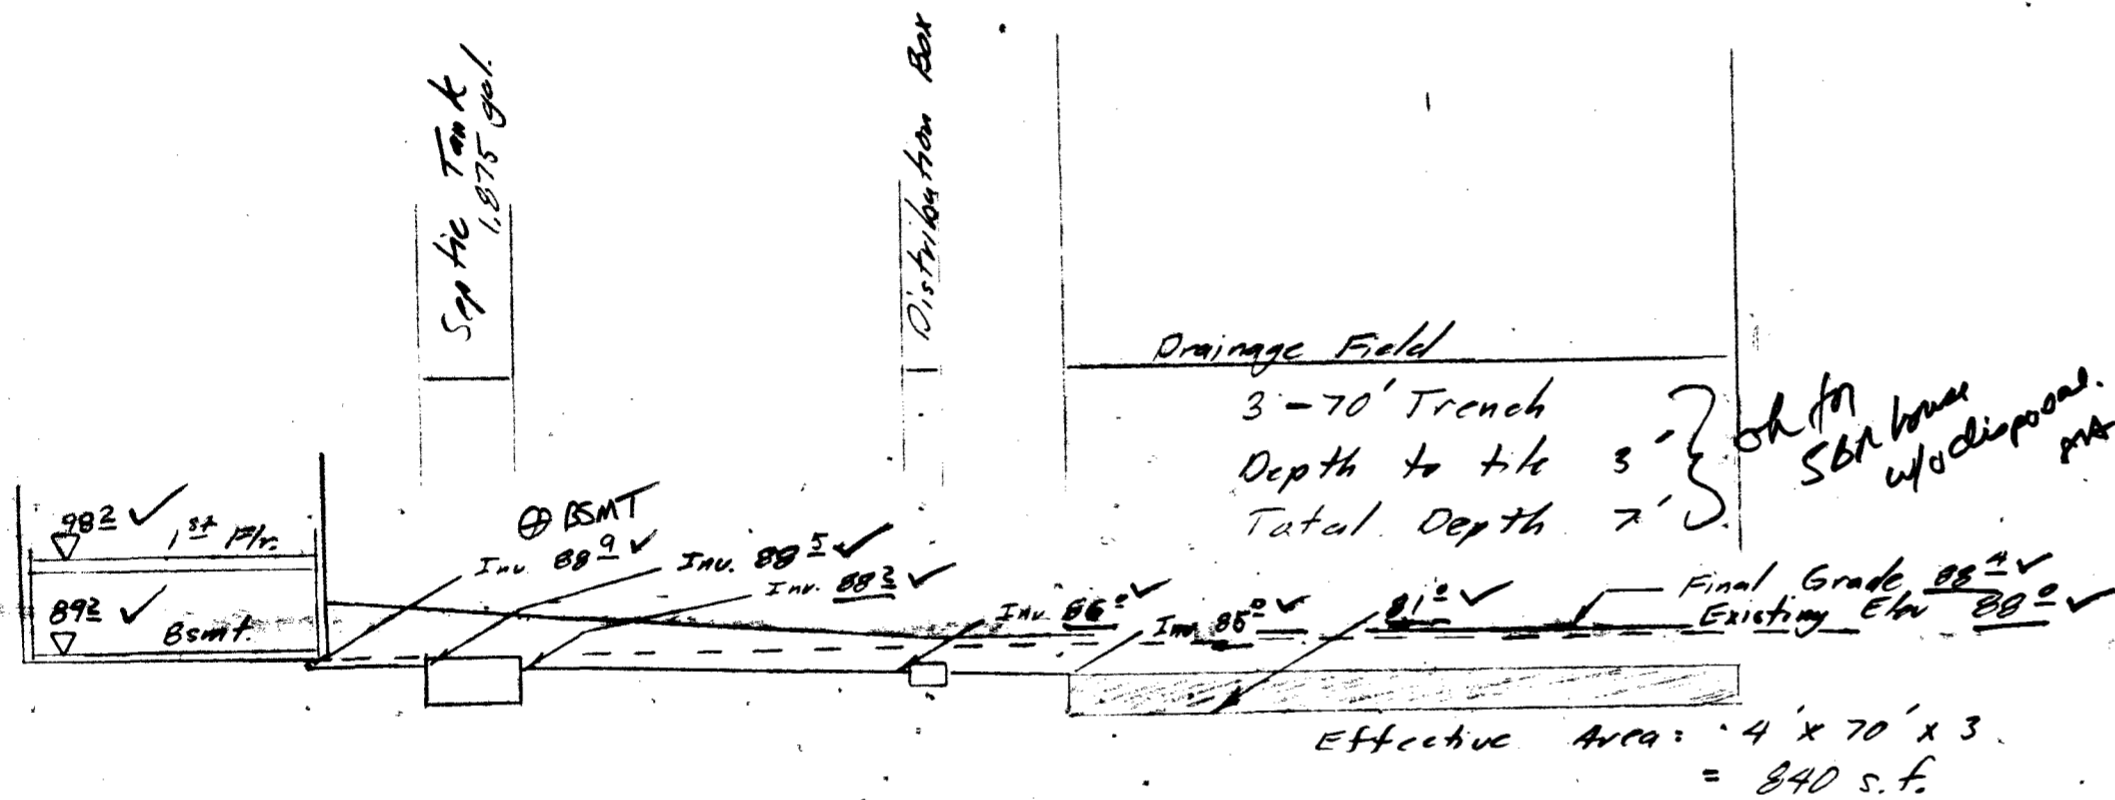 Septic Tank
1,875 gal.
Distribution Box
Drainage Field
3-70' Trench
Depth to tile 3'
Total Depth 7'
ok for
5BR house
w/o disposal.
⊕ BSMT
98 2 ✓
1st Flr.
89 2 ✓
Bsmt.
Inv. 88 9 ✓
Inv. 88 5 ✓
Inv. 88 2 ✓
Inv. 86 0 ✓
Inv. 85 0 ✓
81 0 ✓
Final Grade 88 4 ✓
Existing Elev 88 0 ✓
Effective Area: 4' x 70' x 3
= 840 s.f.